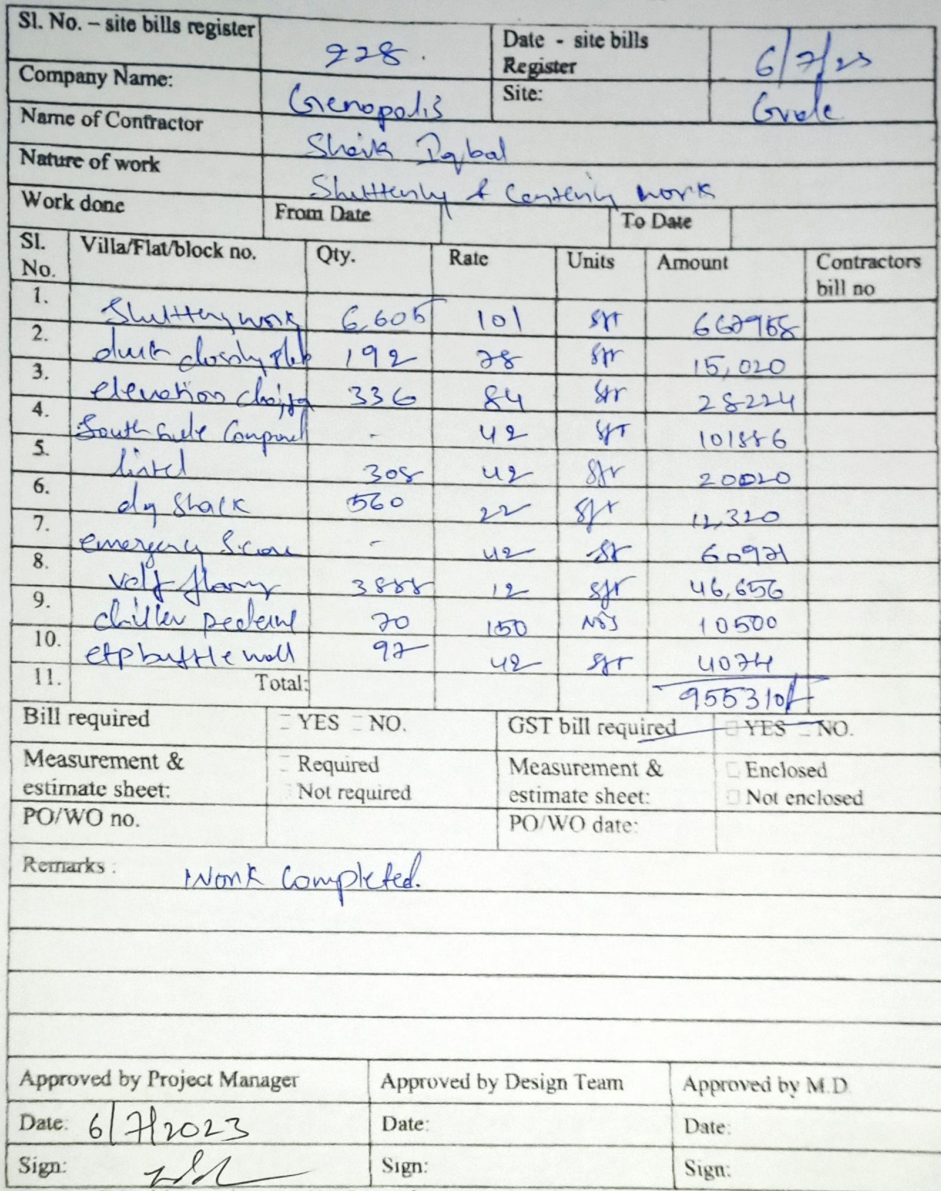 Sl. No. – site bills register 228. Date - site bills Register 6/7/23
Company Name: Genopolis Site: Gvde
Name of Contractor Shaik Iqbal
Nature of work Shuttenly & Centerily work
Work done From Date To Date
Sl. No. Villa/Flat/block no. Qty. Rate Units Amount Contractors bill no
1. Shuttery work 6,605 101 sft
2. 192 78 sft 15,020
3. elevation 336 84 sft 28224
4. South side 42 sft 101886
5. lintel 308 42 sft 20020
6. shack 560 22 sft 12,320
7. emergency - 42 60971
8. 3888 12 sft 46,656
9. chiller 70 150 Nos 10500
10. etp buffle wall 97 42 sft 4074
11. Total: 955310/-
Bill required YES NO. GST bill required YES NO.
Measurement & estimate sheet: Required Not required Measurement & estimate sheet: Enclosed Not enclosed
PO/WO no. PO/WO date:
Remarks : Work Completed.
Approved by Project Manager Approved by Design Team Approved by M.D.
Date: 6/7/2023 Date: Date:
Sign: Sign: Sign: